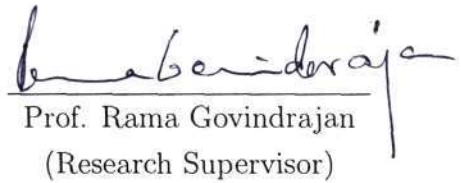 Rama Govindarajan
Prof. Rama Govindrajan
(Research Supervisor)